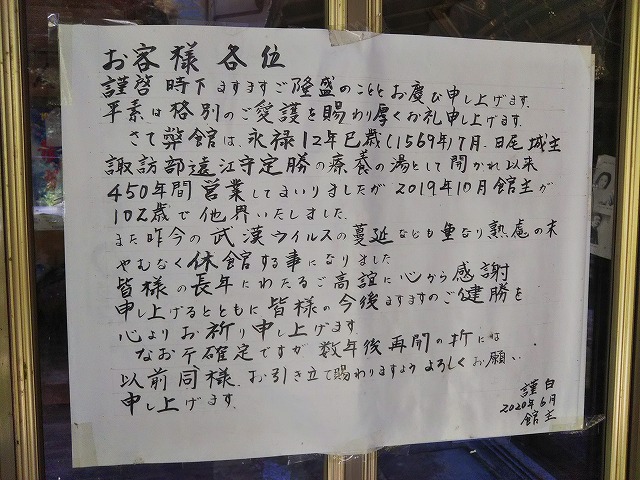 お客様各位
謹啓 時下ますますご隆盛のこととお慶び申し上げます.
平素は格別のご愛護を賜わり厚くお礼申し上げます.
さて弊館は、永禄12年巳歳(1569年)7月、日尾城主
諏訪部遠江守定勝の療養の湯として開かれ以来
450年間営業してまいりましたが 2019年10月館主が
102歳で他界いたしました.
また昨今の武漢ウイルスの蔓延なども重なり熟慮の末
やむなく休館する事になりました
皆様の長年にわたるご高誼に心から感謝
申し上げるとともに皆様の今後ますますのご健勝を
心よりお祈り申し上げます
なお予確定ですが数年後再開の折には
以前同様、お引き立て賜わりますよう よろしくお願い
申し上げます.
謹白
2020年6月
館主